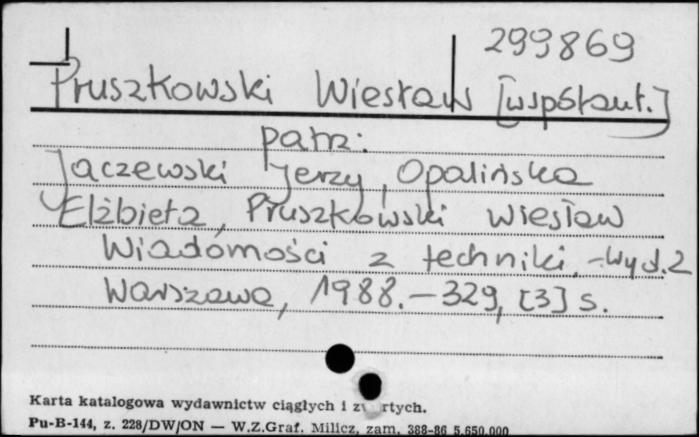 299869
Pruszkowski Wiesław [współaut.]
patrz:
Jaczewski Jerzy, Opalińska
Elżbieta, Pruszkowski Wiesław
Wiadomości z techniki. - Wyd. 2
Warszawa, 1988. - 329, [3] s.
Karta katalogowa wydawnictw ciągłych i zwartych.
Pu-B-144, z. 228/DW/ON — W.Z.Graf. Milicz, zam. 388-86 5.650.000